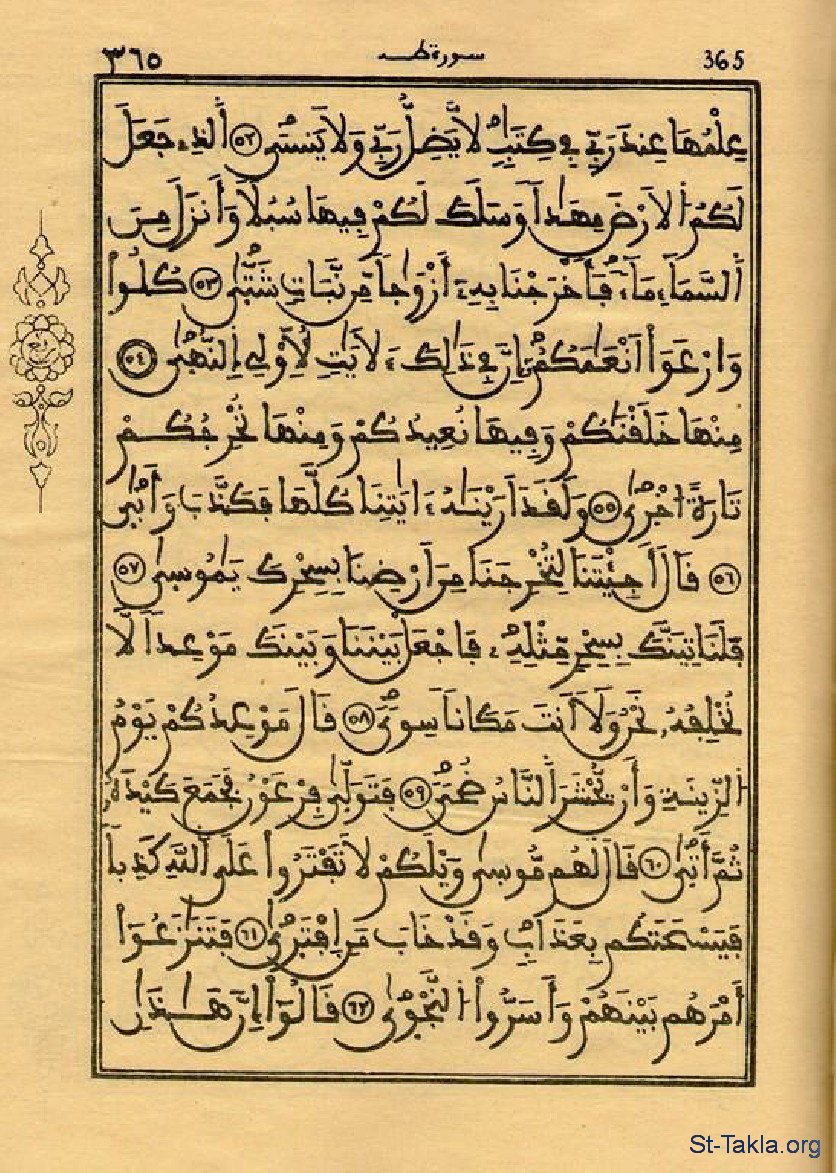 ٣٦٥ سورة طه 365
عِلْمُهَا عِندَ رَبِّے فِے كِتَٰبٖ لَّا يَضِلُّ رَبِّے وَلَا يَنسَى ٥٢ اَ۬لذِے جَعَلَ
لَكُمُ اُ۬لَارْضَ مِهَٰداٗ وَسَلَكَ لَكُمْ فِيهَا سُبُلاٗ وَأَنزَلَ مِنَ
اَ۬لسَّمَآءِ مَآءٗ فَأَخْرَجْنَا بِهِۦٓ أَزْوَٰجاٗ مِّن نَّبَاتٖ شَتَّىٰ ٥٣ كُلُواْ
وَارْعَوَاْ اَنْعَٰمَكُمُۥٓ إِنَّ فِے ذَٰلِكَ ءَلَايَٰتٖ لِّأُوْلِے اِ۬لنُّهَىٰ ٥٤
مِنْهَا خَلَقْنَٰكُمْ وَفِيهَا نُعِيدُكُمْ وَمِنْهَا نُخْرِجُكُمْ
تَارَةً اُخْر۪ىٰ ٥٥ وَلَقَدَ اَرَيْنَٰهُ ءَايَٰتِنَا كُلَّهَا فَكَذَّبَ وَأَبَىٰ
٥٦ قَالَ أَجِئْتَنَا لِتُخْرِجَنَا مِنَ اَرْضِنَا بِسِحْرِكَ يَٰمُوسَىٰ ٥٧
فَلَنَاتِيَنَّكَ بِسِحْرٖ مِّثْلِهِۦ فَاجْعَلْ بَيْنَنَا وَبَيْنَكَ مَوْعِداٗ لَّا
نُخْلِفُهُۥ نَحْنُ وَلَآ أَنتَ مَكَاناٗ سِوىٗ ٥٨ قَالَ مَوْعِدُكُمْ يَوْمُ
اُ۬لزِّينَةِ وَأَنْ يُّحْشَرَ اَ۬لنَّاسُ ضُحىٗ ٥٩ فَتَوَلَّىٰ فِرْعَوْنُ فَجَمَعَ كَيْدَهُۥ
ثُمَّ أَتَىٰ ٦٠ قَالَ لَهُم مُّوسَىٰ وَيْلَكُمْ لَا تَفْتَرُواْ عَلَى اَ۬للَّهِ كَذِباٗ
فَيَسْحَتَكُم بِعَذَابٖ وَقَدْ خَابَ مَنِ اِ۪فْتَر۪ىٰ ٦١ فَتَنَٰزَعُوٓاْ
أَمْرَهُم بَيْنَهُمْ وَأَسَرُّواْ اُ۬لنَّجْوَىٰ ٦٢ قَالُوٓاْ إِنَّ هَٰذَٰنِ
St-Takla.org